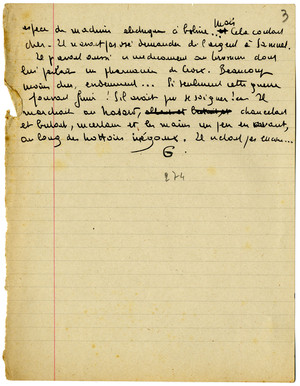 3
espèce de machine électrique à bobine... Mais cela coûtait
cher. Il n'avait pas osé demander de l'argent à Samuel.
Il y avait aussi un médicament au bromure dont
lui parlait un pharmacien de Croix. Beaucoup
moins cher, évidemment... Si seulement cette guerre
pouvait finir! S'il avait pu se soigner! Il
marchait au hasard, chancelant
et butant, les mains un peu en avant,
au long des trottoirs inégaux. Il n'était pas encore...
G.
274